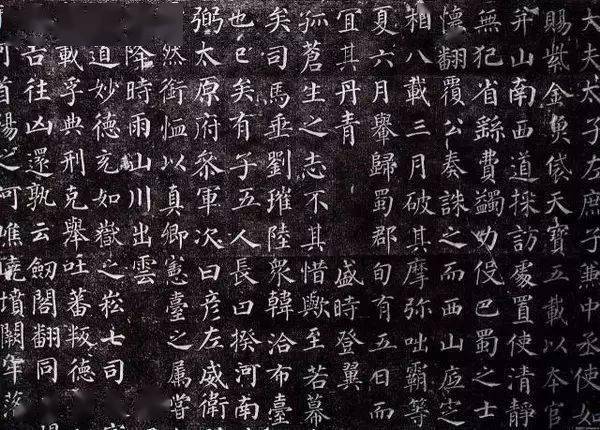 大夫太子左庶子兼中丞使如
賜紫金魚袋天寶五載以本官
并山南西道採訪處置使清靜
無犯省繇費蠲力伇巴蜀之士
懷翻覆公奏誅之而西山底定
相八載三月破其摩弥咄霸等
夏六月舉歸蜀郡旬有五日而
宜其丹青 盛時登翼
孤蒼生之志不其惜歟至若幕
矣司馬垂劉璀陸衆韓洽布臺
也已矣有子五人長曰揆河南
弼太原府叅軍次曰彦左威衛
然銜恤以真卿憲臺之属嘗
降時雨山川出雲
道妙德充如嶽之崧七司
載孚典刑克舉吐蕃叛德
古往凶還孰云劒閣翻同
首陽之阿嶕嶢墳闕牢落